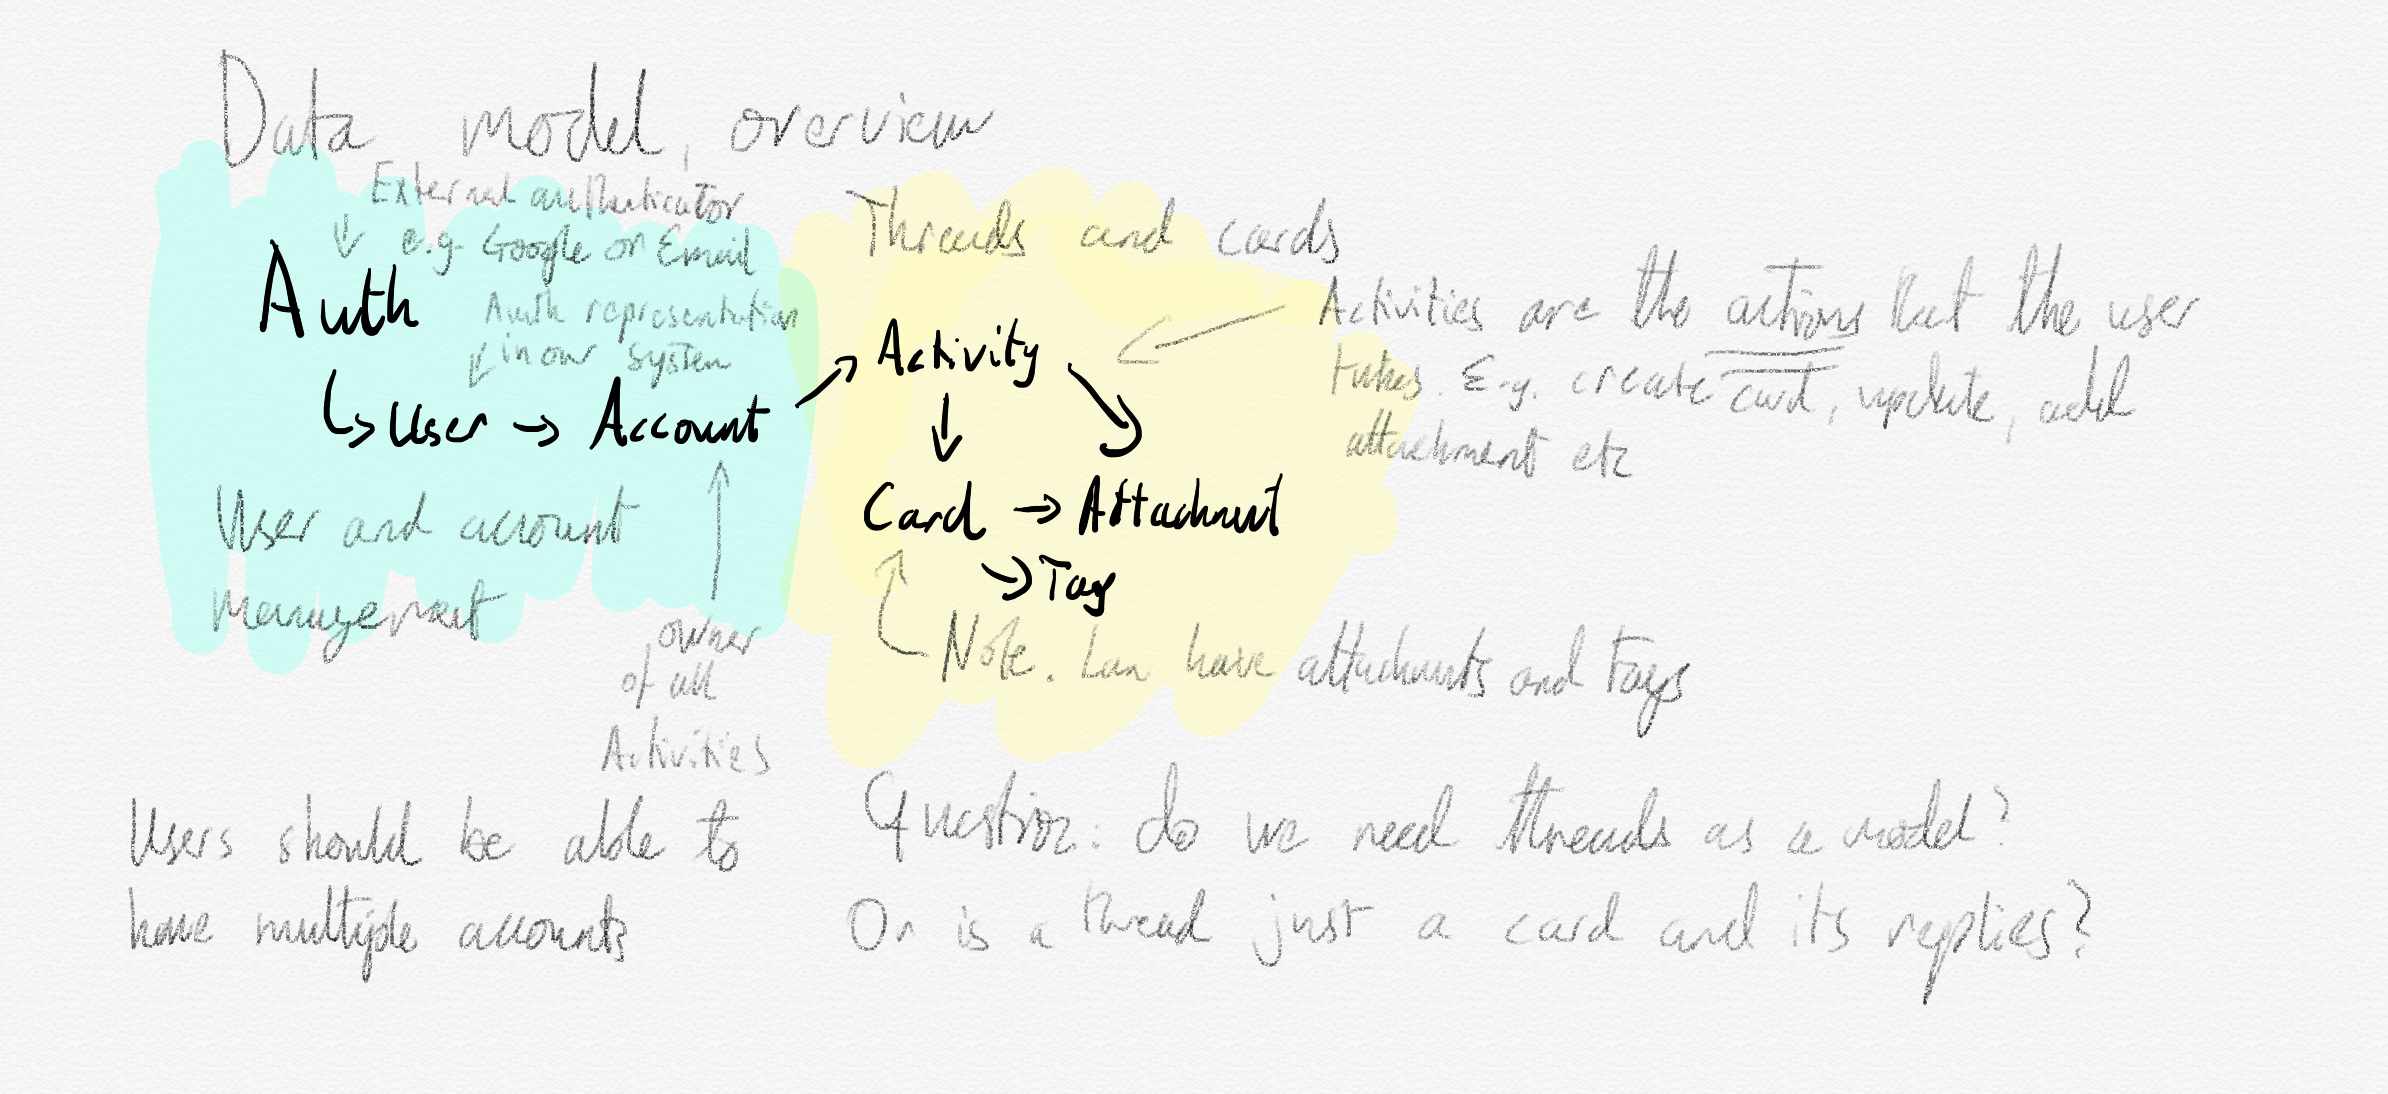 Data model, overview
External authenticator
e.g. Google or Email
Auth
Auth representation
in our system
User → Account
User and account
management
owner
of all
Activities
Users should be able to
have multiple accounts
Threads and cards
Activity
Card → Attachment
Tag
Activities are the actions that the user
takes. E.g. create card, update, add
attachment etc
Note. Can have attachments and tags
Question: do we need threads as a model?
Or is a thread just a card and its replies?